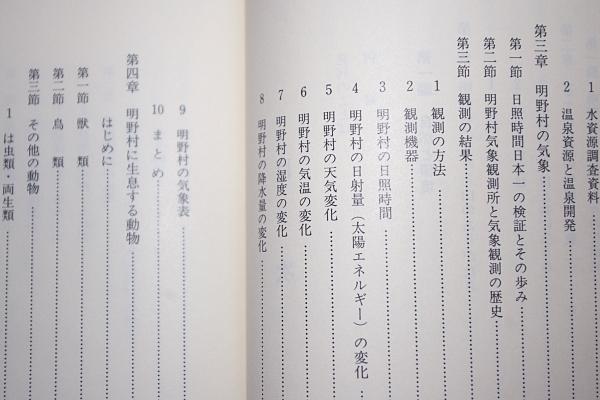 1 水資源調査資料
2 温泉資源と温泉開発
第三章 明野村の気象
第一節 日照時間日本一の検証とその歩み
第二節 明野村気象観測所と気象観測の歴史
第三節 観測の結果
1 観測の方法
2 観測機器
3 明野村の日照時間
4 明野村の日射量（太陽エネルギー）の変化
5 明野村の天気変化
6 明野村の気温の変化
7 明野村の湿度の変化
8 明野村の降水量の変化
9 明野村の気象表
10 まとめ
第四章 明野村に生息する動物
はじめに
第一節 獣類
第二節 鳥類
第三節 その他の動物
1 は虫類・両生類